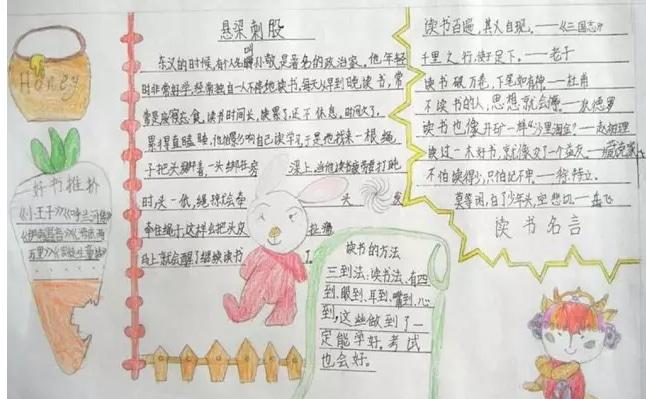 Honey
好书推扑
《小王子》《呼兰河传》
悬梁刺股
东汉的时候,有个人名叫孙敬,是著名的政治家。他年轻
时非常好学,经常独自一人不停地读书,每天从早到晚读书,常
常是废寝忘食。读书时间长,读累了,还不休息。时间久了,
累得直瞌睡,他怕影响自己读学习,于是他找来一根绳
子把头
梁上,当他读书疲劳打盹
时,头一低,绳
头发
牵住绳子,这样会把头皮扯痛
马上就会醒了继续读书了。
读书的方法
三到法:读书法,有四
到、眼到、耳到、嘴到、心
到,这些做到了一
定能学好。考试
也会好。
读书百遍,其义自现。——《三国志》
千里之行,使于足下。——老子
读书破万卷,下笔如有神——杜甫
不读书的人,思想就会停。——狄德罗
读书也像开矿一样"沙里淘金"——赵树理
读过一木好书,就像交了一个益友。——臧克家
不怕读得少,只怕记不牢。——徐特立
莫等闲,白了少年头,空悲切——岳飞
读书名言